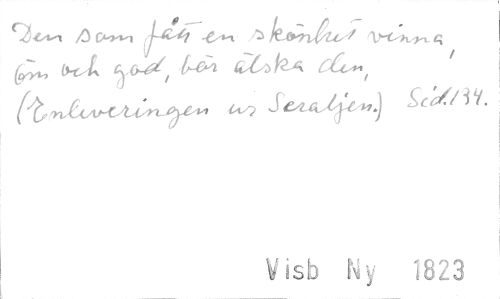 Den som fått en skönhet vinna,
öm och god, bör älska den,
(Enleveringen ur Seraljen.) Sid. 134.
Visb Ny 1823